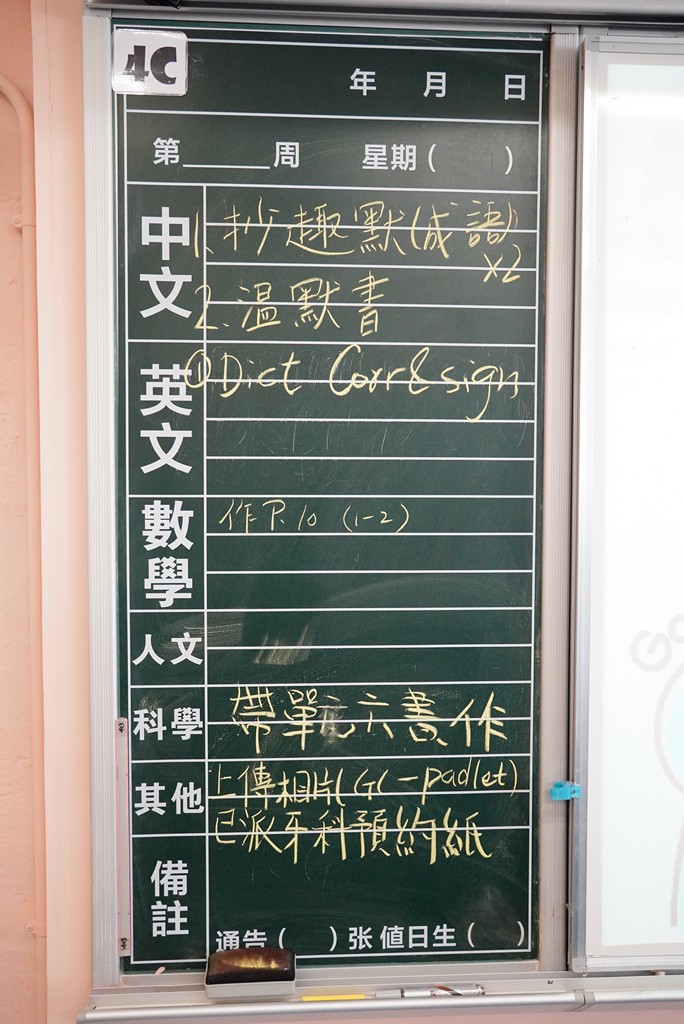 4C
年 月 日
第______周 星期( )
中文
1. 抄趣默(成語)
x2
2. 溫默書
英文
① Dict Corr & sign
數學
作 P.10 (1-2)
人文
科學
帶單元六書、作
其他
上傳相片(GC-padlet)
已派牙科預約紙
備註
通告( )张 值日生( )